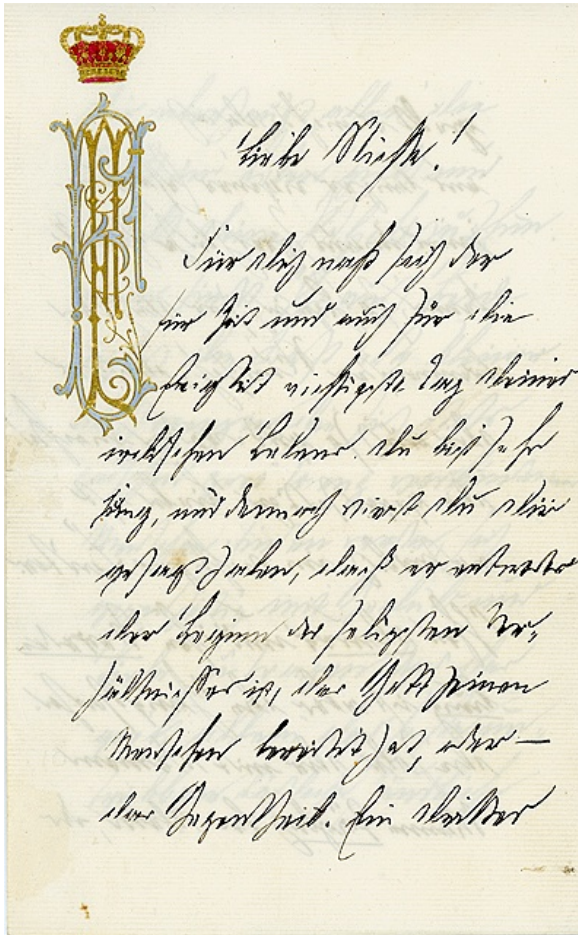 Liebe Nichte!
Für dich naht sich der
für Zeit und auch für die
Ewigkeit wichtigste Tag deines
irdischen Lebens. du bist sehr
jung, und dennoch wirst du dir
gesagt haben, daß er entweder
der Beginn des seligsten Ver-
hältnisses ist, das Gott seinen
Menschen bereitet hat, oder —
das Gegentheil. Ein Drittes